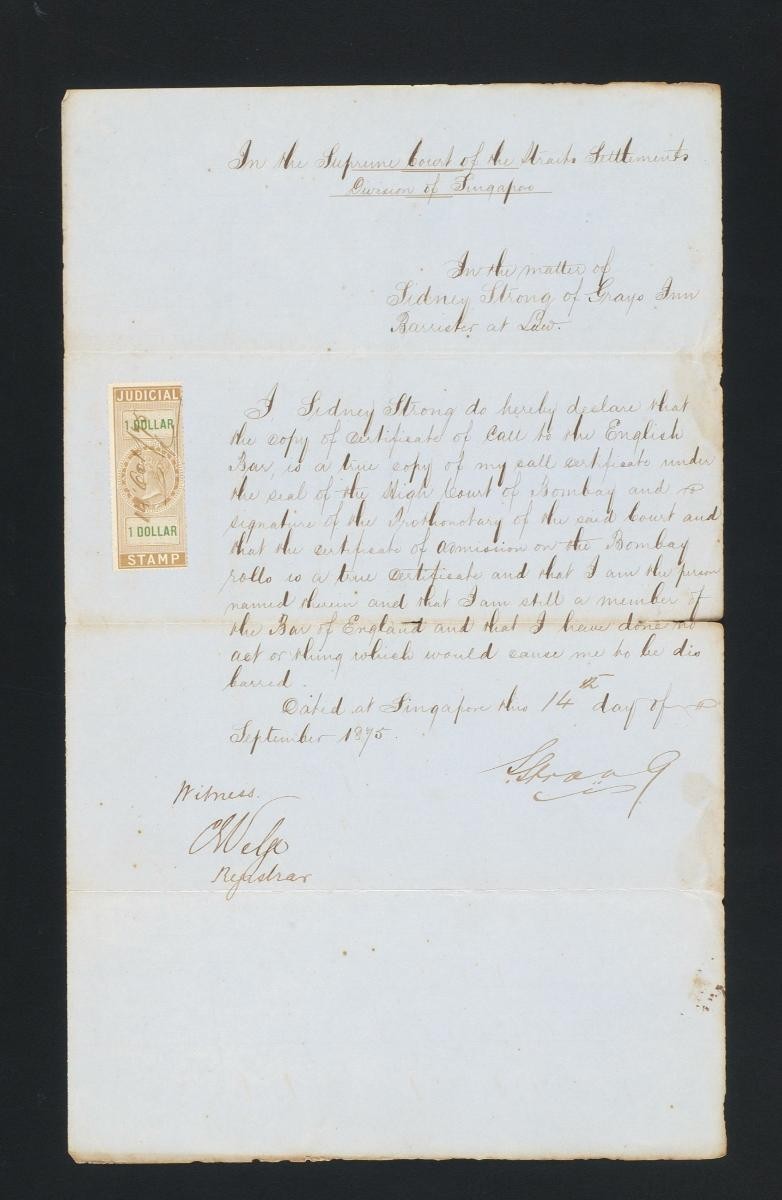 In the Supreme Court of the Straits Settlements
Division of Singapore
In the matter of
Sidney Strong of Grays Inn
Barrister at Law.
JUDICIAL
1 DOLLAR
1 DOLLAR
STAMP
I, Sidney Strong do hereby declare that
the copy of certificate of call to the English
Bar, is a true copy of my call certificate under
the seal of the High Court of Bombay and
signature of the Prothonotary of the said Court and
that the certificate of admission on the Bombay
rolls is a true certificate and that I am the person
named therein and that I am still a member of
the Bar of England and that I have done no
act or thing which would cause me to be dis
barred.
Dated at Singapore this 14th day of
September 1875.
SStrong
Witness.
Registrar